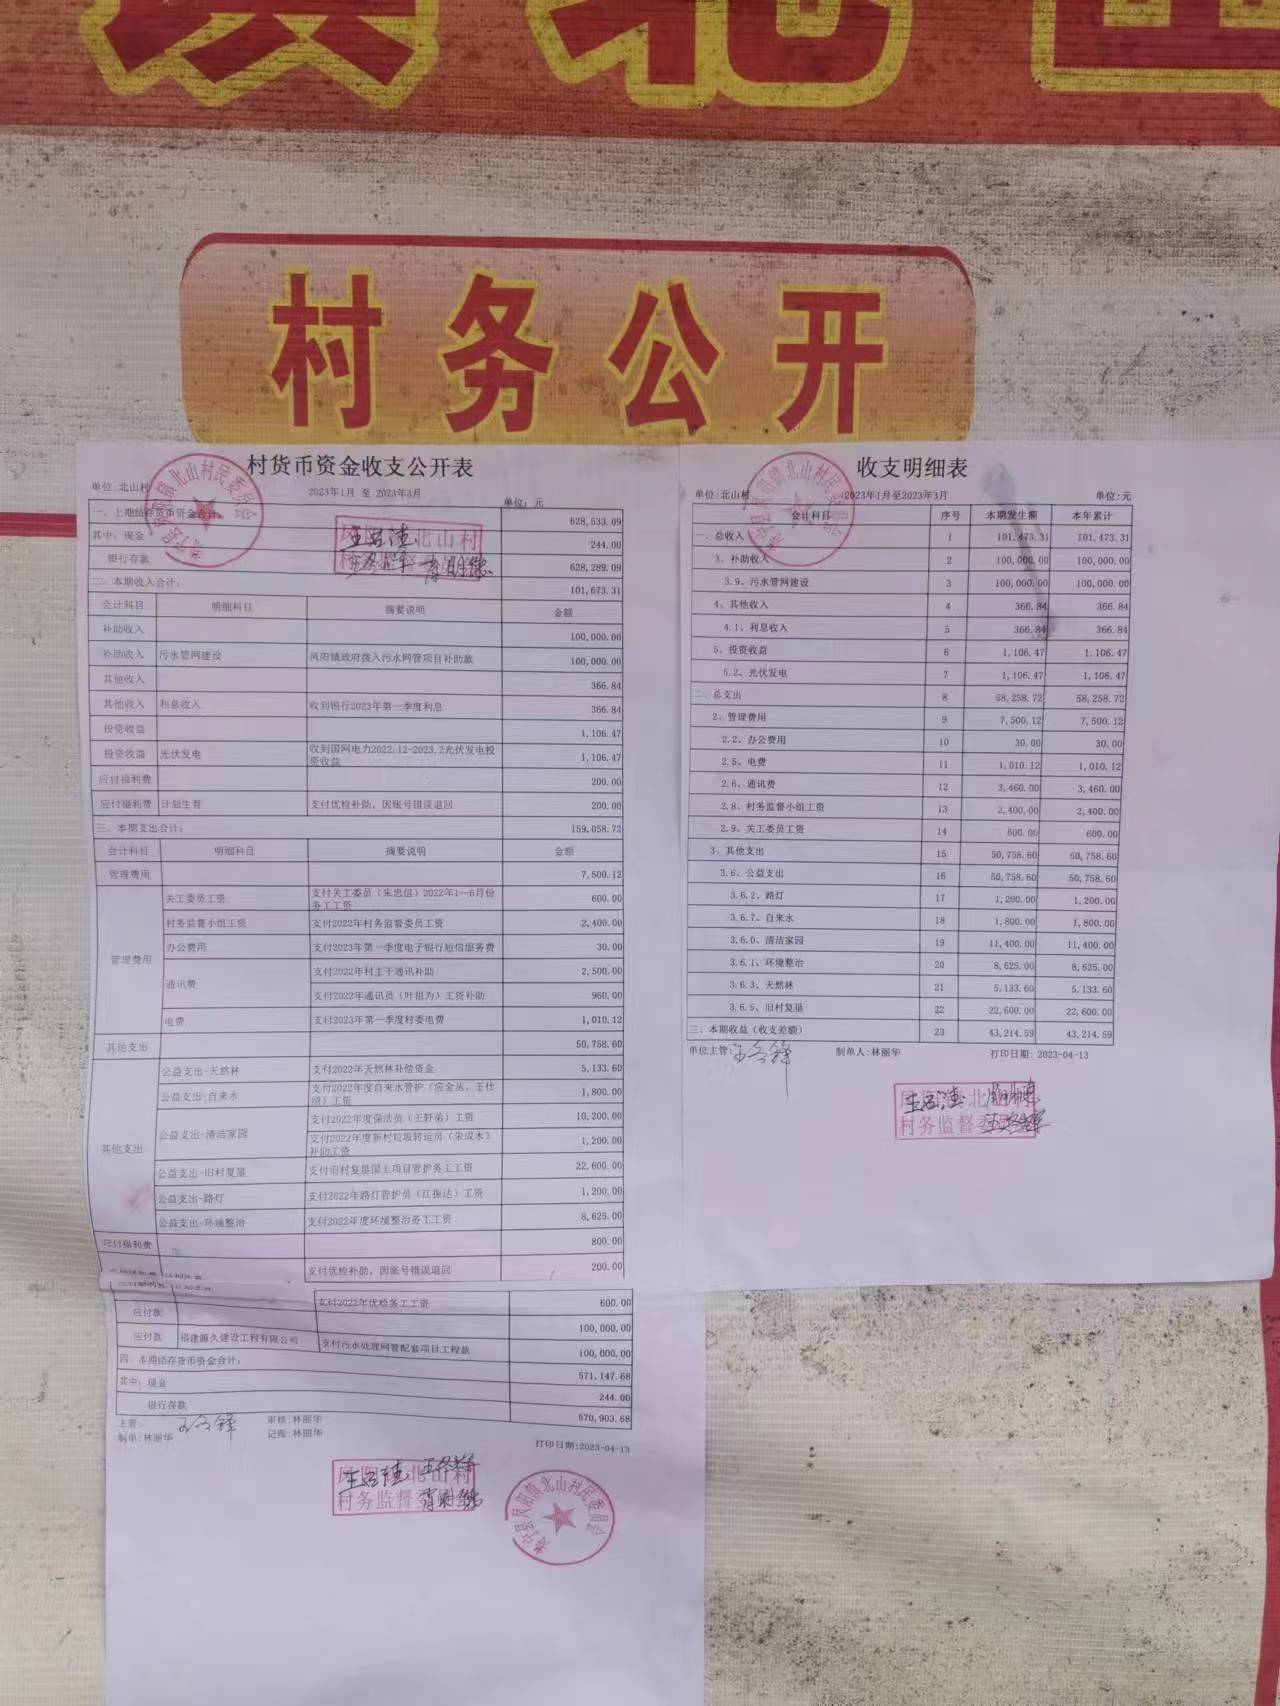 村务公开
村货币资金收支公开表
单位:北山村
2023年1月 至 2023年3月
单位: 元
一、上期结存货币资金合计: 628,533.09
其中: 现金 244.00
银行存款 628,289.09
二、本期收入合计: 101,673.31
会计科目 明细科目 摘要说明 金额
补助收入 100,000.00
补助收入 污水管网建设 凤阳镇政府拨入污水网管项目补助款 100,000.00
其他收入 366.84
其他收入 利息收入 收到银行2023年第一季度利息 366.84
投资收益 1,106.47
投资收益 光伏发电 收到国网电力2022.12-2023.2光伏发电投资收益 1,106.47
应付福利费 200.00
应付福利费 计划生育 支付优检补助，因账号错误退回 200.00
三、本期支出合计: 159,058.72
会计科目 明细科目 摘要说明 金额
管理费用 7,500.12
管理费用 关工委员工资 支付关工委员（朱忠信）2022年1—6月份务工工资 600.00
村务监督小组工资 支付2022年村务监督委员工资 2,400.00
办公费用 支付2023年第一季度电子银行短信服务费 30.00
通讯费 支付2022年村主干通讯补助 2,500.00
支付2022年通讯员（叶祖为）工资补助 960.00
电费 支付2023年第一季度村委电费 1,010.12
其他支出 50,758.60
其他支出 公益支出-天然林 支付2022年天然林补偿资金 5,133.60
公益支出-自来水 支付2022年度自来水管护（应金丛、王仕 工资 1,800.00
公益支出-清洁家园 支付2022年度保洁员（王轩弟）工资 10,200.00
支付2022年度新村垃圾转运员（朱成木）补助工资 1,200.00
公益支出-旧村复垦 支付旧村复垦国土项目管护务工工资 22,600.00
公益支出-路灯 支付2022年路灯管护员（江振达）工资 1,200.00
公益支出-环境整治 支付2022年度环境整治务工工资 8,625.00
应付福利费 800.00
支付优检补助，因账号错误退回 200.00
支付2022年优检务工工资 600.00
应付款 100,000.00
应付款 福建源久建设工程有限公司 支付污水处理网管配套项目工程款 100,000.00
四、本期结存货币资金合计: 571,147.68
其中: 现金 244.00
银行存款 570,903.68
主管: 审核:林丽华
制单:林丽华 记账:林丽华
打印日期:2023-04-13
村务监督委员会
寿宁县凤阳镇北山村民委员会
收支明细表
单位:北山村
2023年1月至2023年3月
单位:元
会计科目 序号 本期发生额 本年累计
一、总收入 1 101,473.31 101,473.31
3、补助收入 2 100,000.00 100,000.00
3.9、污水管网建设 3 100,000.00 100,000.00
4、其他收入 4 366.84 366.84
4.1、利息收入 5 366.84 366.84
5、投资收益 6 1,106.47 1,106.47
5.2、光伏发电 7 1,106.47 1,106.47
二、总支出 8 58,258.72 58,258.72
2、管理费用 9 7,500.12 7,500.12
2.2、办公费用 10 30.00 30.00
2.5、电费 11 1,010.12 1,010.12
2.6、通讯费 12 3,460.00 3,460.00
2.8、村务监督小组工资 13 2,400.00 2,400.00
2.9、关工委员工资 14 600.00 600.00
3、其他支出 15 50,758.60 50,758.60
3.6、公益支出 16 50,758.60 50,758.60
3.6.2、路灯 17 1,200.00 1,200.00
3.6.7、自来水 18 1,800.00 1,800.00
3.6.0、清洁家园 19 11,400.00 11,400.00
3.6.1、环境整治 20 8,625.00 8,625.00
3.6.3、天然林 21 5,133.60 5,133.60
3.6.5、旧村复垦 22 22,600.00 22,600.00
三、本期收益（收支差额） 23 43,214.59 43,214.59
单位主管: 制单人:林丽华 打印日期: 2023-04-13